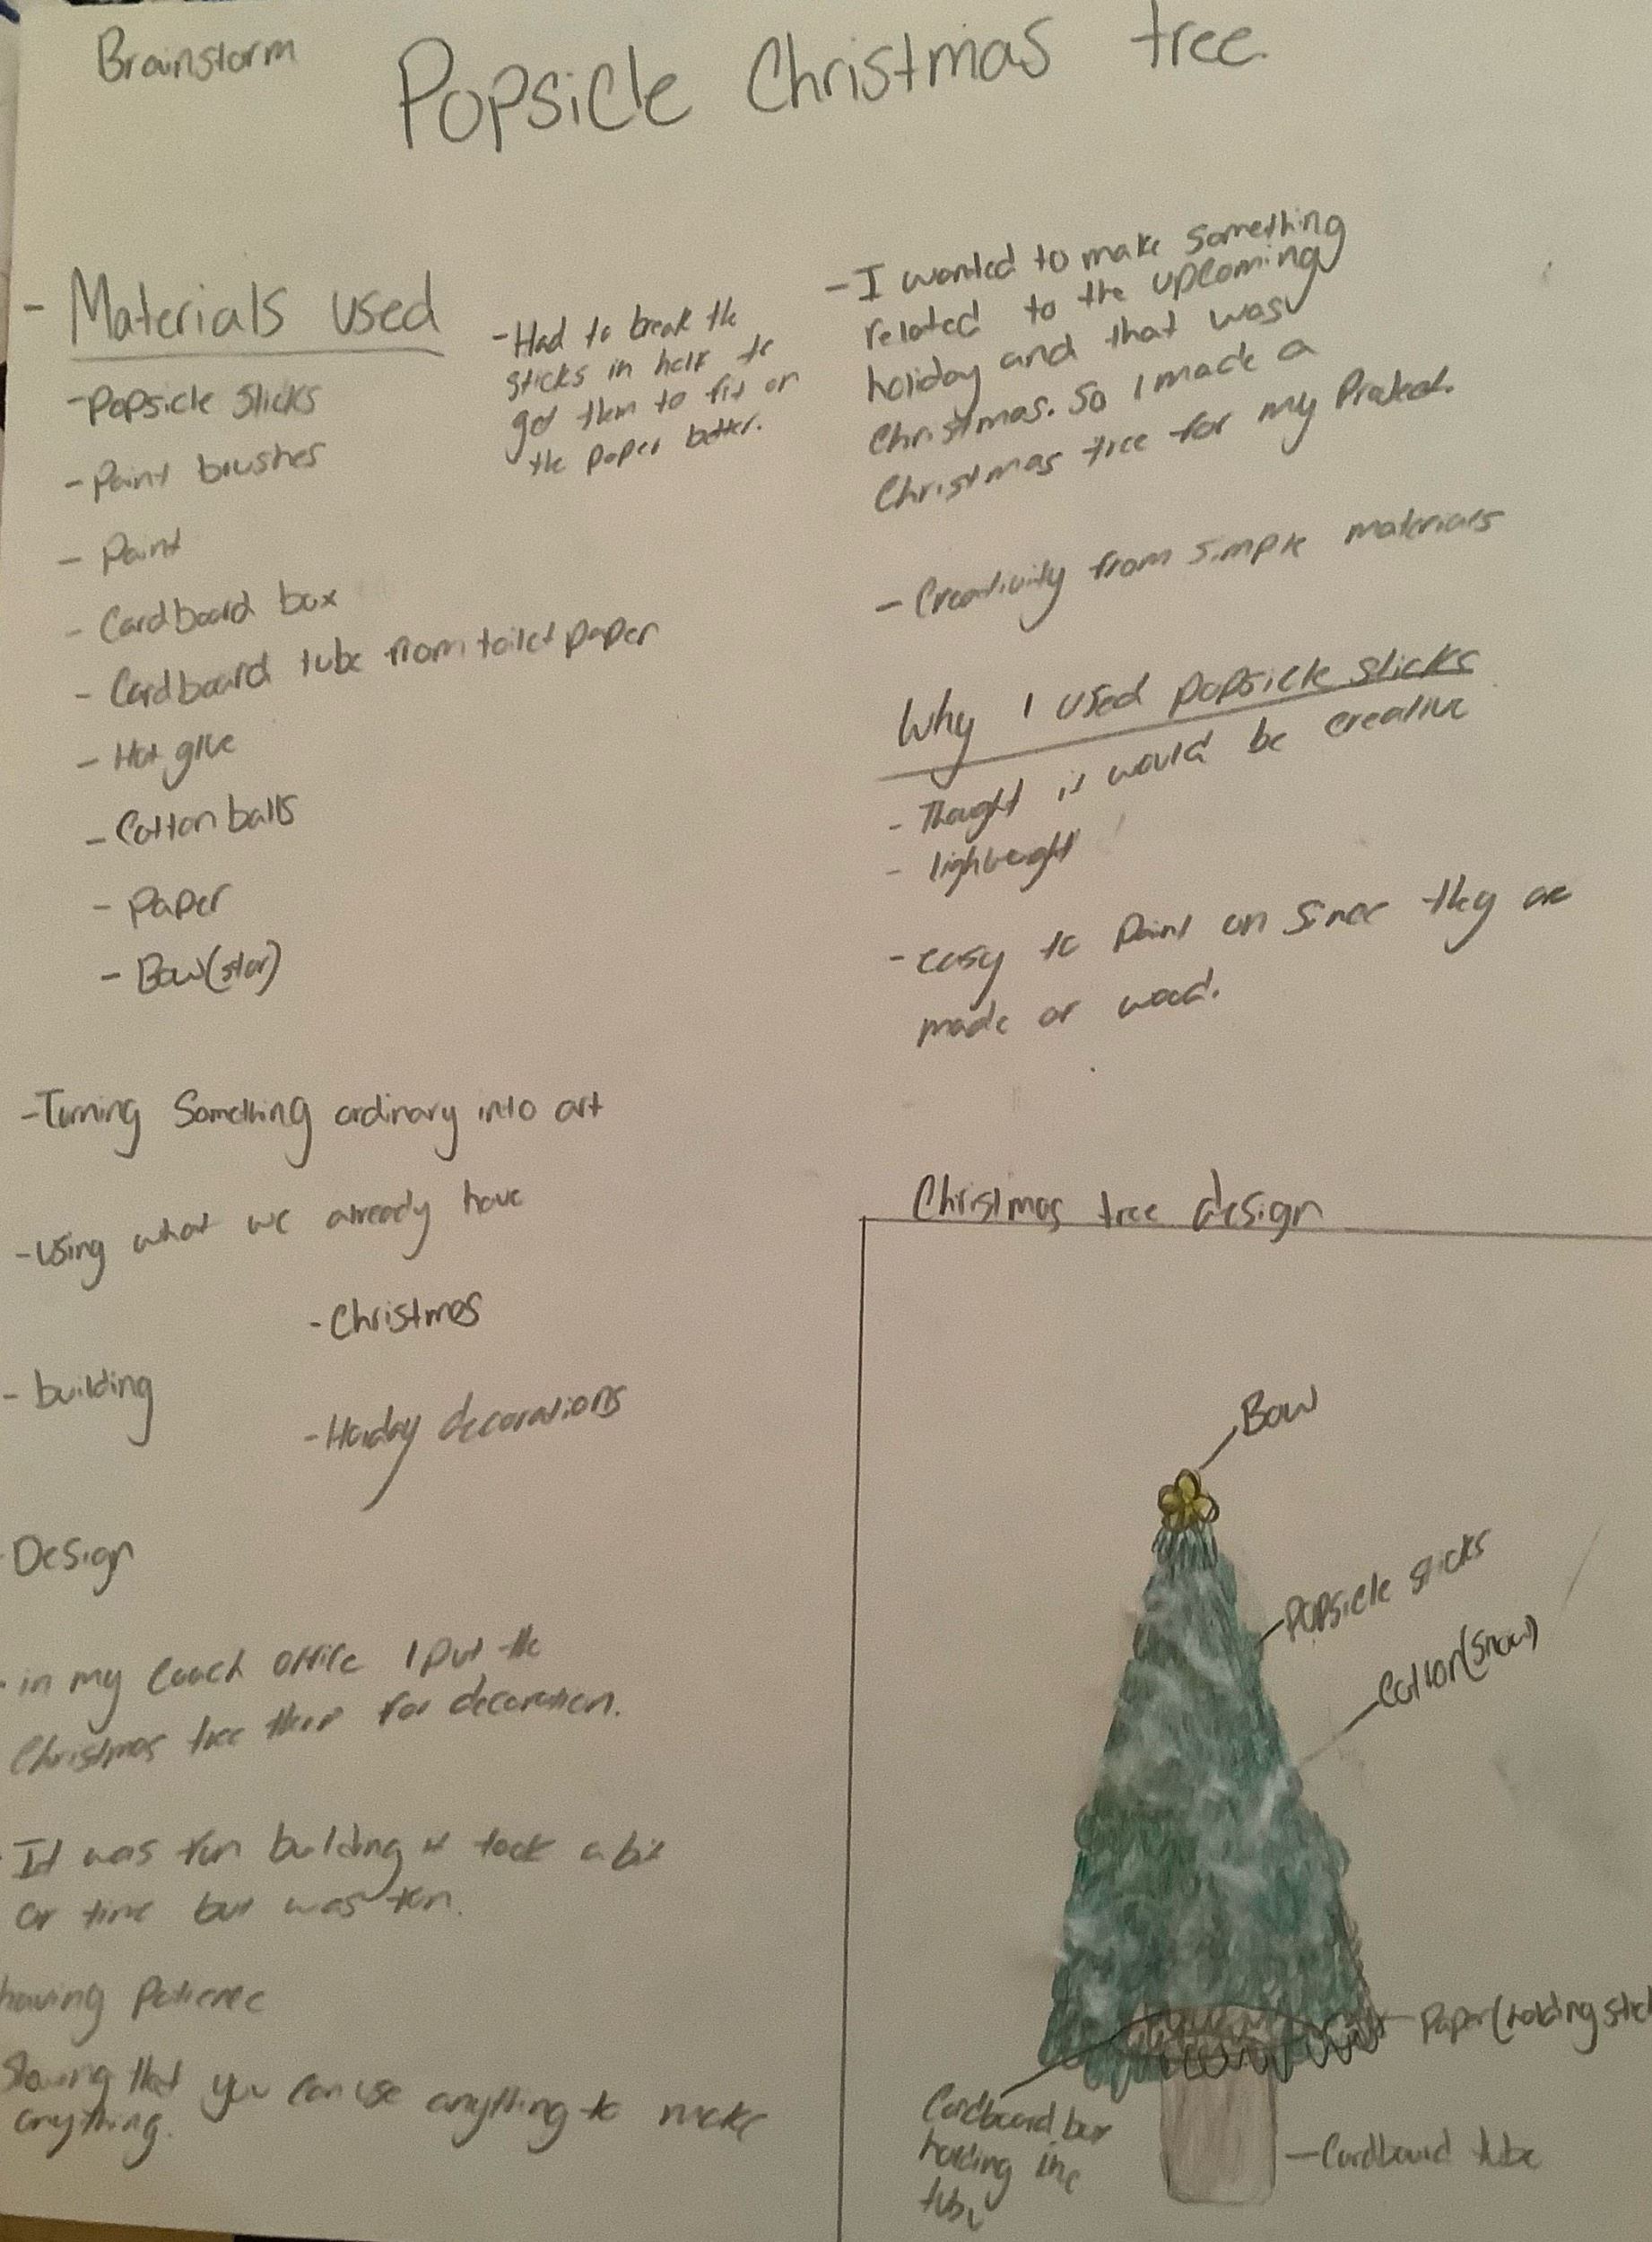 Brainstorm
Popsicle Christmas tree
- Materials used
- Popsicle sticks
- Paint brushes
- Paint
- Cardboard box
- Cardboard tube from toilet paper
- Hot glue
- Cotton balls
- Paper
- Bow(star)
- Had to break the
sticks in half to
get them to fit on
the paper better.
- I wanted to make something
related to the upcoming
holiday and that was
Christmas. So I made a
Christmas tree for my Project.
- Creativity from simple materials
Why I used popsicle sticks
- Thought it would be creative
- lightweight
- easy to paint on since they are
made of wood.
- Turning Something ordinary into art
- using what we already have
- Christmas
- building
- Holiday decorations
Design
- in my coach office I put the
Christmas tree there for decoration.
It was fun building it took a bit
of time but was fun.
having Patience
Showing that you can use anything to make
anything.
Christmas tree design
Bow
Popsicle sticks
Cotton(snow)
Paper(holding stic
Cardboard box
holding the
tube
Cardboard tube